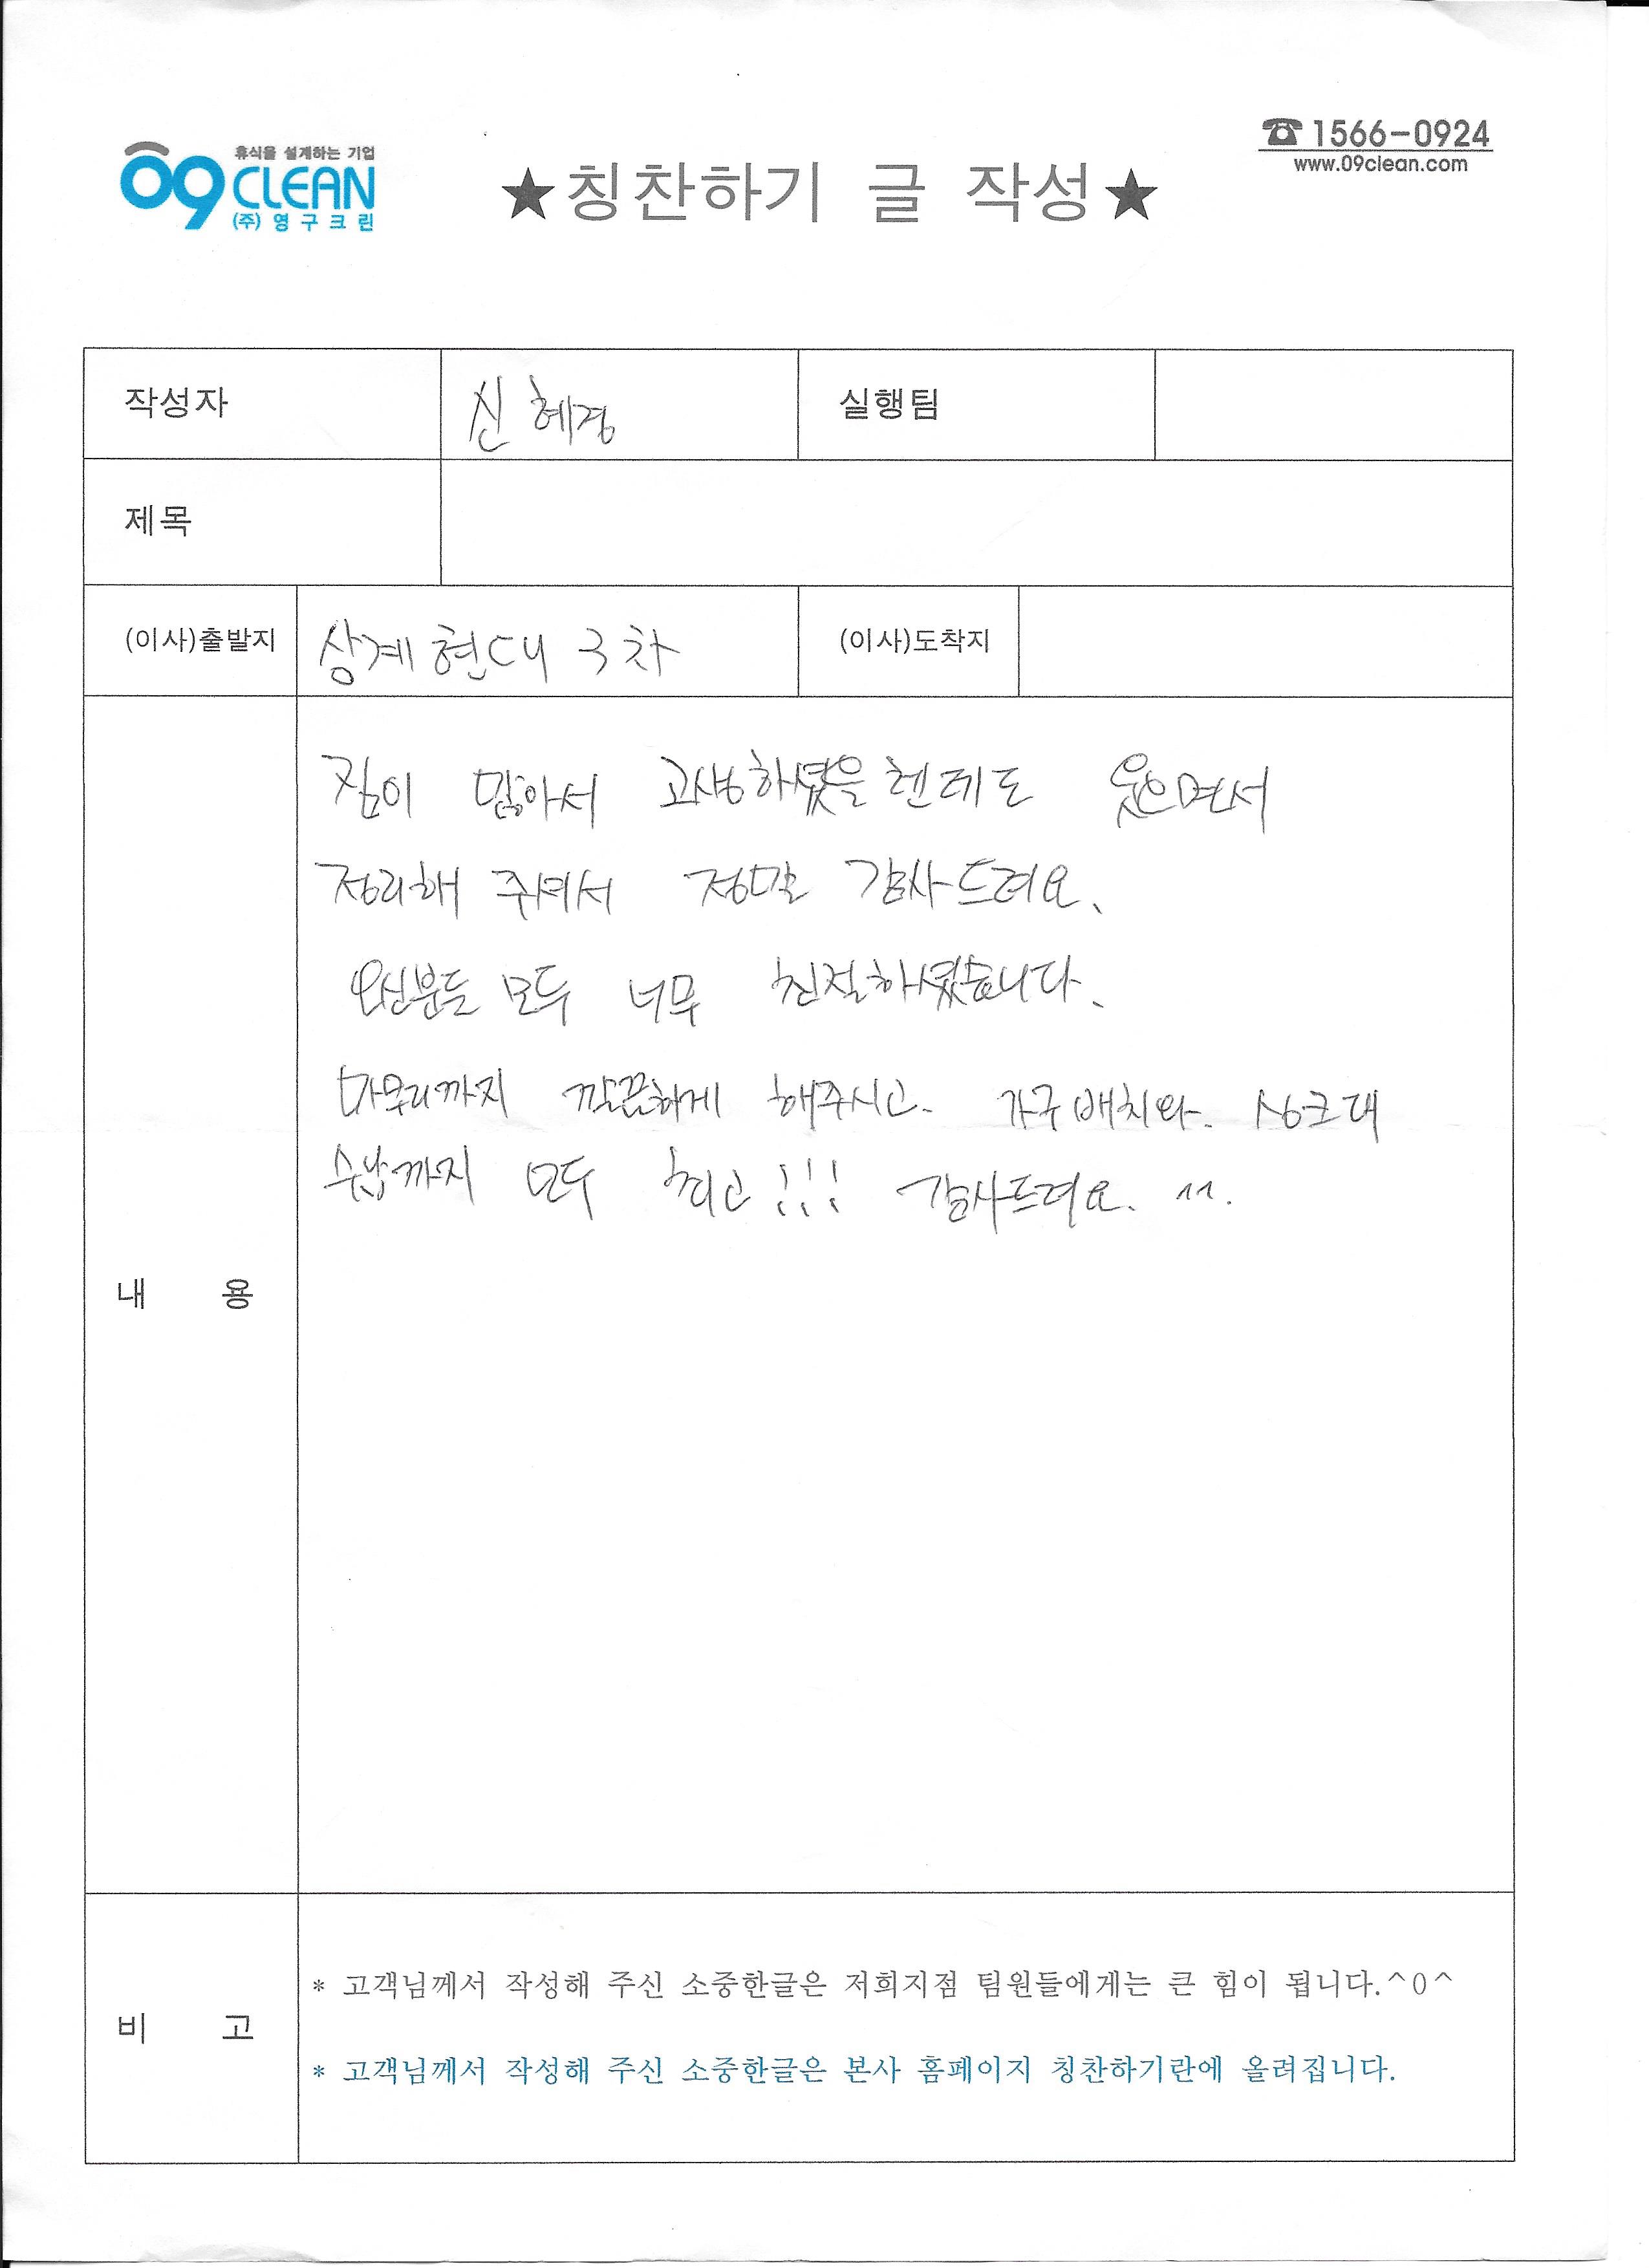 휴식을 설계하는 기업
09 CLEAN
(주)영구크린
★칭찬하기 글 작성★
☎1566-0924
www.09clean.com
작성자 신혜경 실행팀
제목
(이사)출발지 상계현대 3차 (이사)도착지
짐이 많아서 고생하셨을텐데도 웃으면서
정리해 주셔서 정말 감사드려요.
오신분들 모두 너무 친절하셨습니다.
마무리까지 깔끔하게 해주시고. 가구배치와. 싱크대
수납까지 모두 최고!!! 감사드려요. ^^.
내 용
비 고
* 고객님께서 작성해 주신 소중한글은 저희지점 팀원들에게는 큰 힘이 됩니다.^0^
* 고객님께서 작성해 주신 소중한글은 본사 홈페이지 칭찬하기란에 올려집니다.